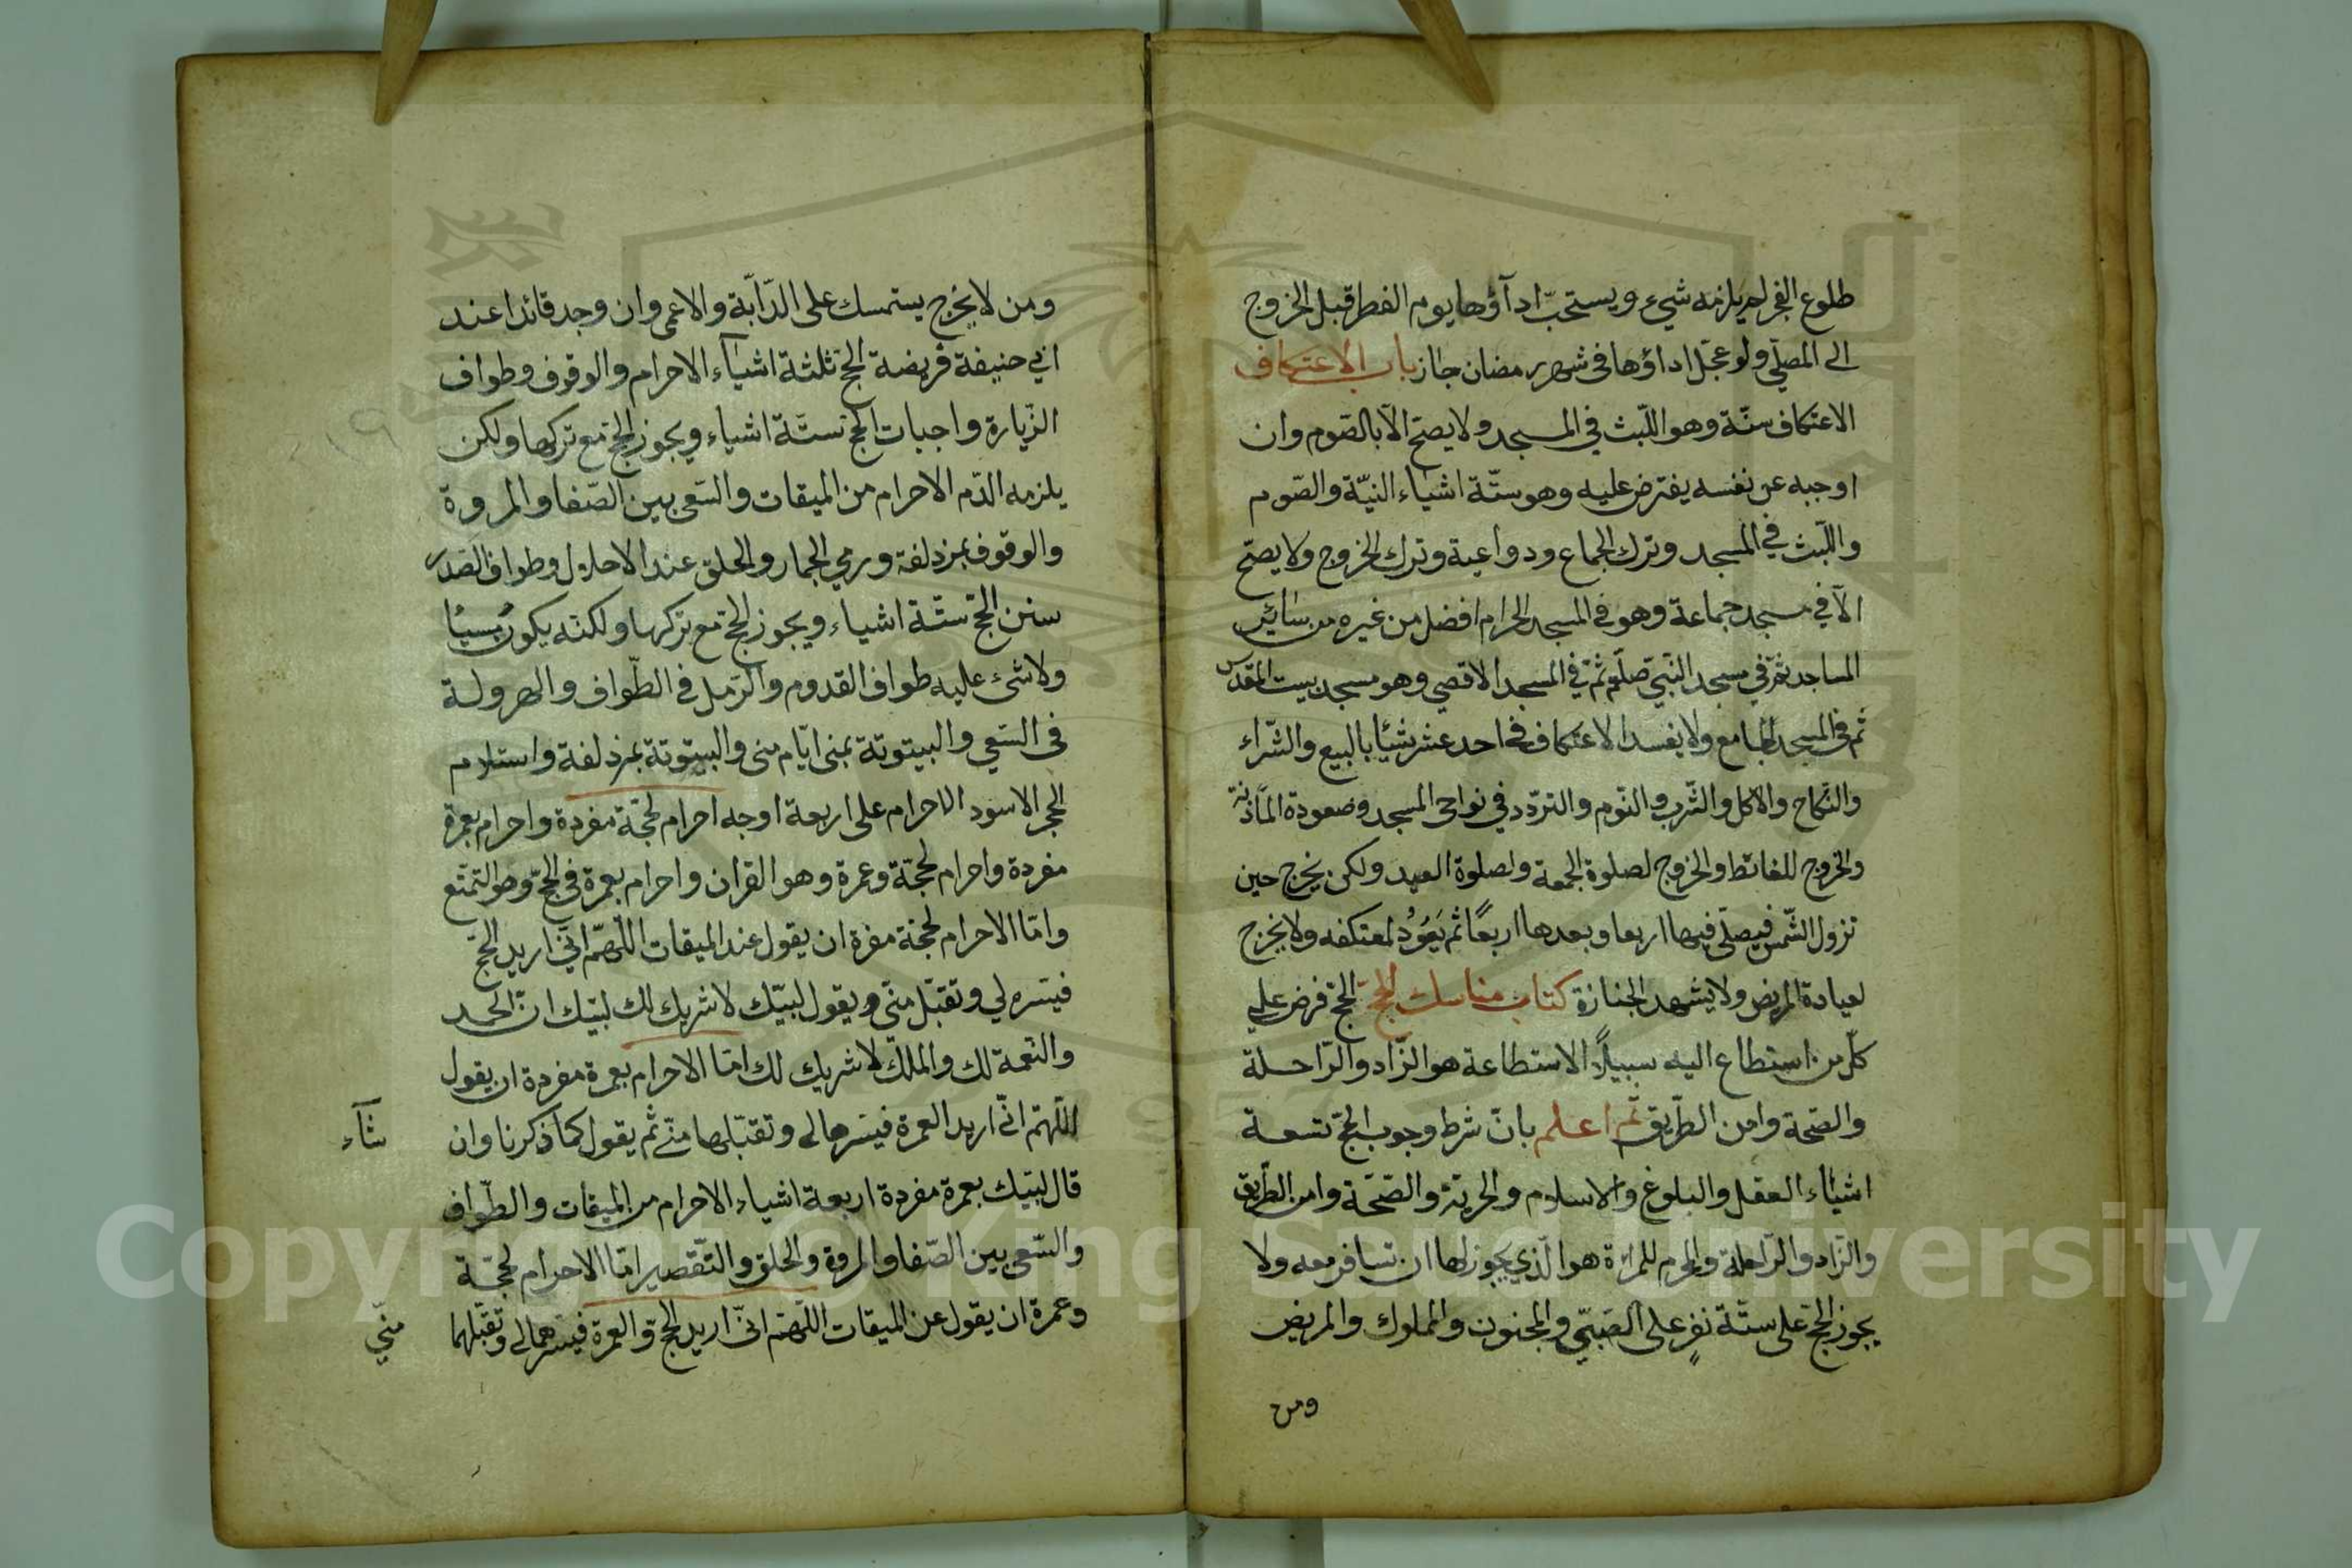 طلوع الفجر لم يلزمه شيء ويستحبّ ادآؤها يوم الفطر قبل الخروج
الى المصلّي ولو عجّل اداؤها فى شهر رمضان جاز باب الاعتكاف
الاعتكاف سنّة وهو اللّبث في المسجد ولا يصحّ الّا بالصّوم وان
اوجبه عن نفسه يفترض عليه وهو ستّة اشياء النيّة والصّوم
واللّبث في المسجد وترك الجماع ودواعية وترك الخروج ولا يصحّ
الّا في مسجد جماعة وهو في المسجد الحرام افضل من غيره من سائر
المساجد ثمّ في مسجد النّبيّ صلّم ثمّ في المسجد الاقصى وهو مسجد بيت المقدّس
ثم فى المسجد الجامع ولا يفسد الاعتكاف في احد عشر شيئا بالبيع والشّراء
والنّكاح والاكل والشّرب والنّوم والتردّد في نواحى المسجد وصعودة المأذنة
والخروج للغائط والخروج لصلوة الجمعة ولصلوة العيد ولكن يخرج حين
تزول الشّمس فيصلّى فيها اربعا وبعدها اربعًا ثم يَعُوْدُ لمعتكفه ولا يخرج
لعيادة المريض ولا يشهد الجنازة كتاب مناسك الحجّ الحجّ فرض على
كلّ من استطاع اليه سبيلاً الاستطاعة هو الزّاد والرّاحلة
والصّحة وامن الطّريق ثم اعلم بانّ شرط وجوب الحجّ تسعة
اشياء العقل والبلوغ والاسلام والحريّة والصّحّة وامن الطّريق
والزّاد والرّاحلة والمحرم للمرأة هو الّذي يجوز لها ان تسافر معه ولا
يجوز الحجّ على ستّة نفرٍ على الصّبيّ والمجنون والمملوك والمريض
ومن
ومن لا يخرج يستمسك على الدّآبّة والاعمى وان وجد قائدا عند
ابي حنيفة فريضة الحجّ ثلثة اشيآء الاحرام والوقوف وطواف
الزّيارة واجبات الحجّ ستّة اشياء ويجوز الحجّ مع تركها ولكن
يلزمه الدّم الاحرام من الميقات والسّعى بين الصّفا والمروة
والوقوف بمزدلفة ورمي الجمار والحلق عند الاحلال وطواف الصّدر
سنن الحجّ ستّة اشياء ويجوز الحجّ مع تركها ولكنّه يكون مسيئا
ولا شىء عليه طواف القدوم والرّمل في الطّواف والهرولة
فى السّعي والبيتوتة بمنى ايّام منى والبيتوتة بمزدلفة واستلام
الحجر الاسود الاحرام على اربعة اوجه احرام لحجّة مفردة واحرام بعمرة
مفردة واحرام لحجّة وعمرة وهو القران واحرام بعمرة في الحجّ وهو التمتّع
وامّا الاحرام لحجّة مفرة ان يقول عند الميقات اللّهمّ انّي اريد الحجّ
فيسّره لي وتقبّل منّى ويقول لبّيك لا شريك لك لبّيك انّ الحمد
والنّعمة لك والملك لا شريك لك امّا الاحرام بعمرة مفردة ان يقول
اللّهمّ انّى اريد العمرة فيسّرها لى وتقبّلها منّى ثم يقول كما ذكرنا وان
شآء
قال لبّيك بعمرة مفردة اربعة اشياء الاحرام من الميقات والطّواف
والسّعى بين الصّفا والمروة والحلق والتّقصير امّا الاحرام لحجّة
وعمرة ان يقول عن الميقات اللّهمّ انّى اريد الحجّ والعمرة فيسّرهما لى وتقبّلهما
منّي
١٩
Copyright © King Saud University
1957